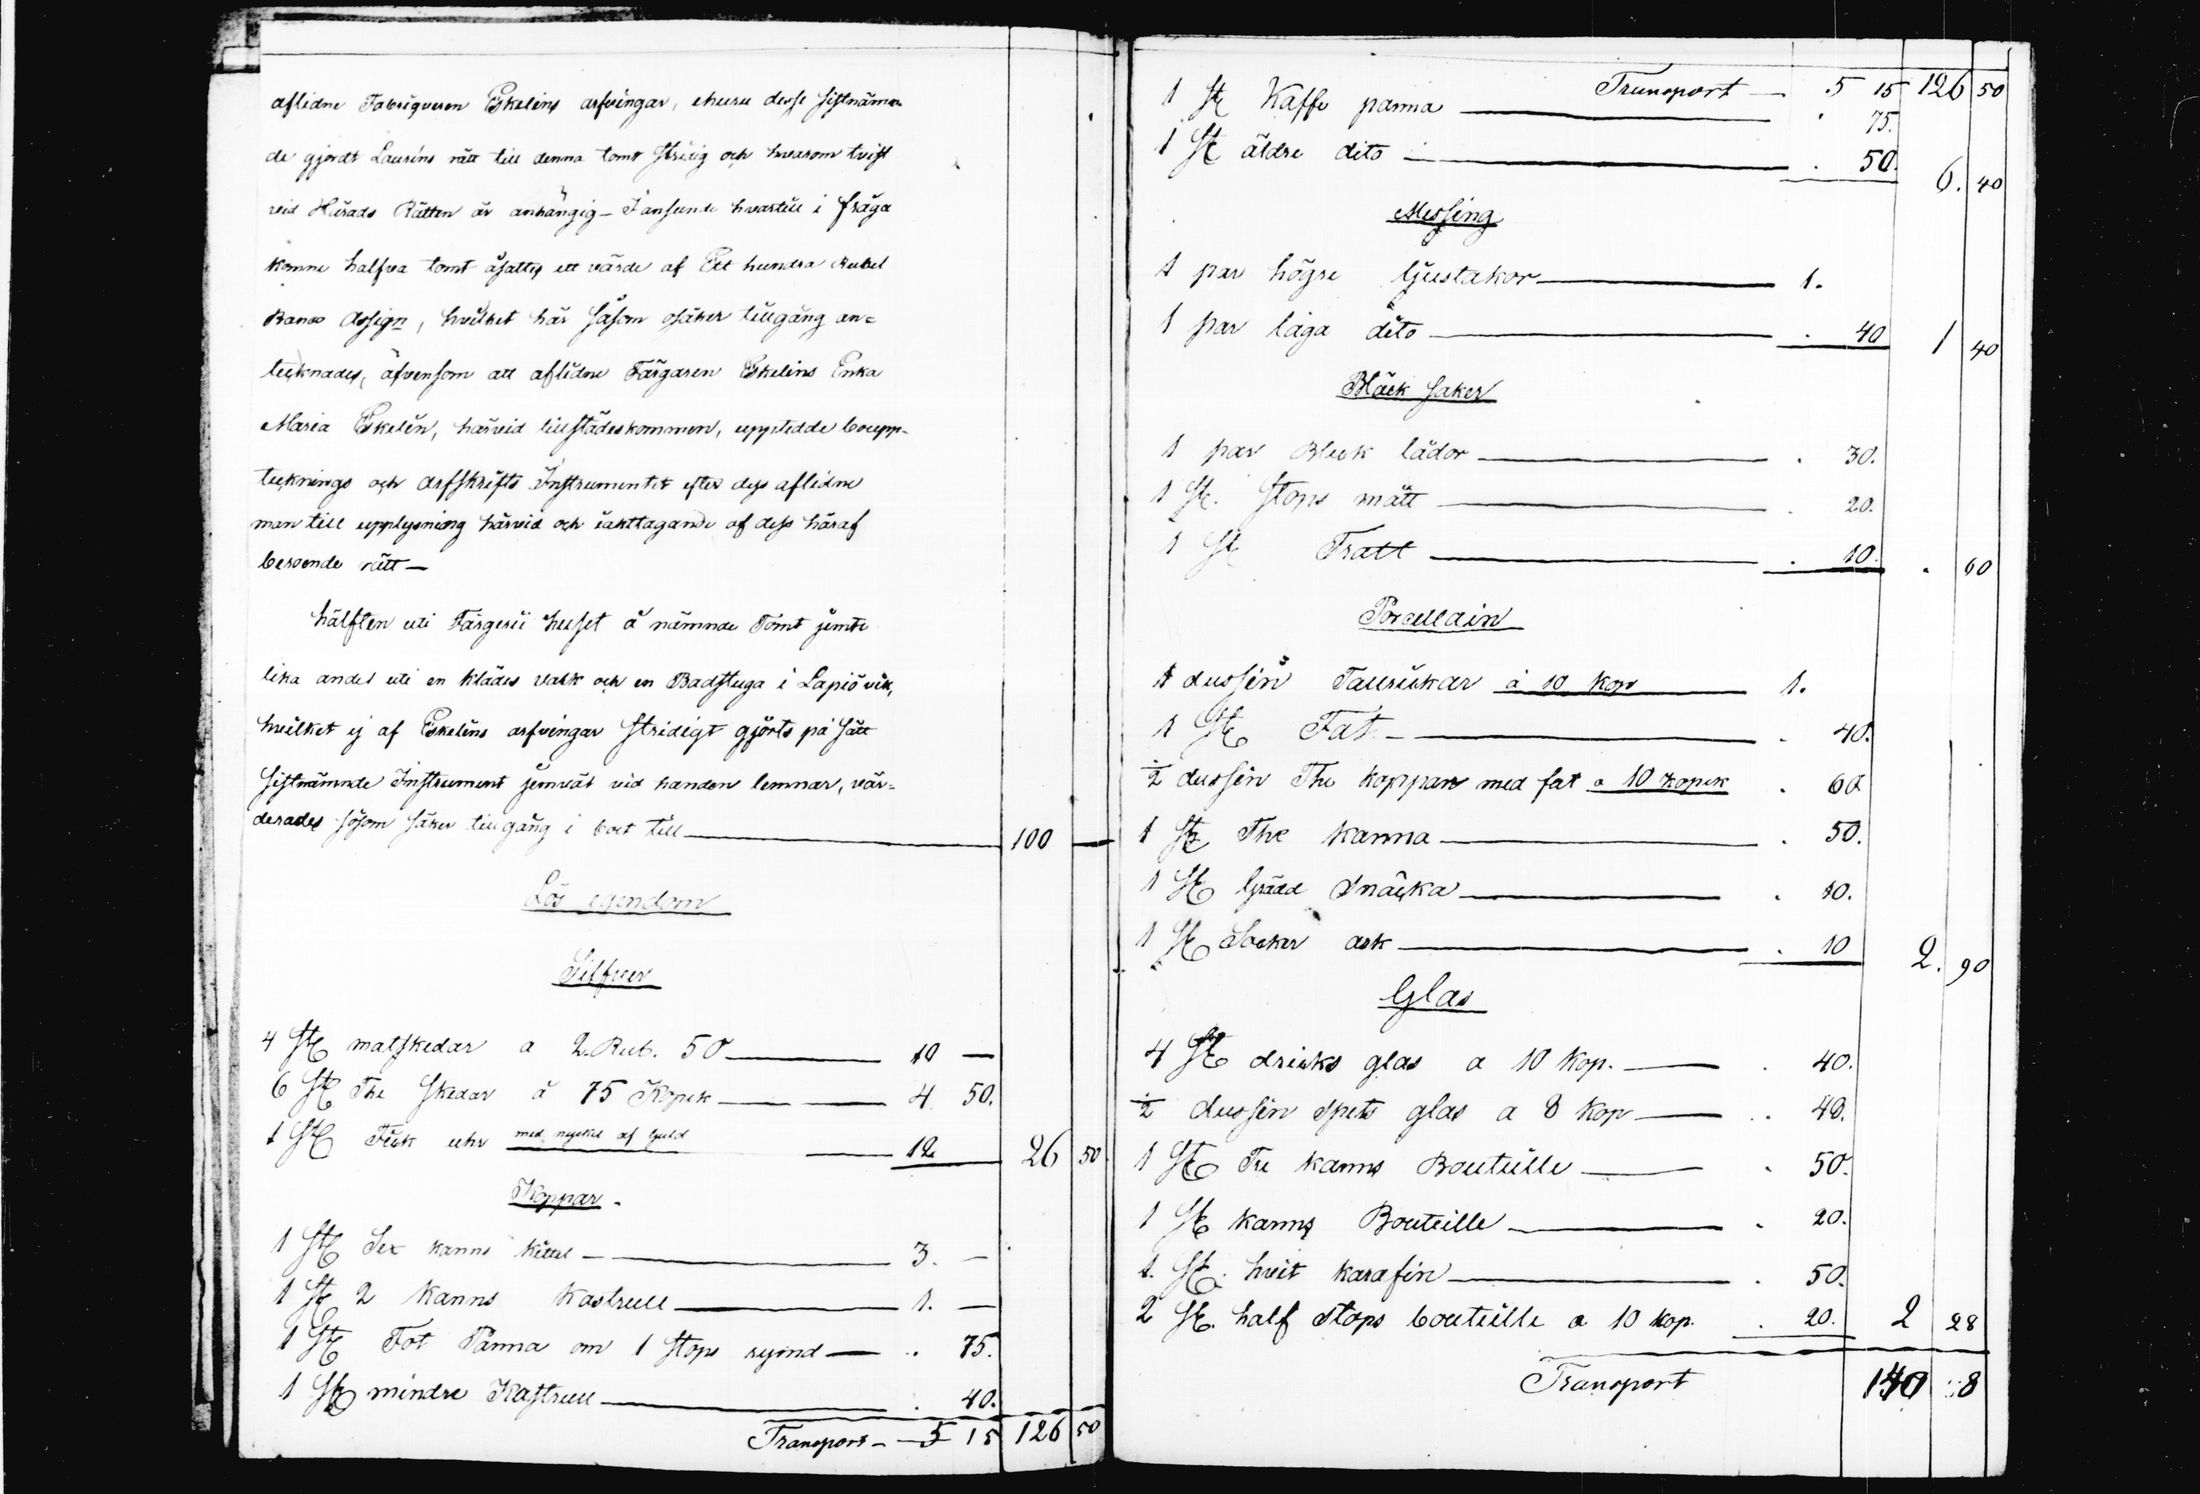 aflidne Fabriqueren Eskelins arfvingar, ehuru desse sistnämn-
de gjordt Laurins rätt till denna tomt stridig och hvarom tvist
vid Härads Rätten är anhängig – I anseende hvartill i fråga
komne halfva tomt åsattes ett värde af Ett hundra Rubel
Banco Assign, hvilket här såsom osäker tillgång an=
tecknades, äfvensom att aflidne Färgaren Eskelins Enka
Maria Eskelin, härvid tillstädeskommen, uppstedde boupp-
tecknings och arfskrifts Instrumentet efter dess aflidne
man till upplysning härvid och iakttagande af dess häraf
beroende rätt —
hälften uti Färgeri huset å nämnde Tomt jemte
lika andel uti en klädes valk och en Badstuga i Lapiovik,
hvilket ej af Eskelins arfvingar stridigt gjorts på sätt
sistnämnde Instrument jemväl vid handen lemnar, vär=
derades såsom säker tillgång i boet till — 100 —
Lös egendom
Silfver
4 St matskedar a 2. Rub. 50 — 10 —
6 St The skedar á 75 Kopek — 4 50.
1 St Fick uhr med nyckel af Guld — 12 26 50
Koppar.
1 St Sex kanns kittel — 3. —
1 St 2 Kanns Kastrull — 1. —
1 St Fot Panna om 1 Stops rymd — .. 75.
1 St mindre Kastrull — . 40.
Transport — 5 15 126 50
Transport — 5 15 126 50
1 St Kaffe panna — . 75.
1 St äldre dito — . 50. 6. 40
Messing
1 par högre ljustakor — 1.
1 par låga dito — . 40 1 40
Bläck saker
1 par Bleck lådor — . 30.
1 St. Stops mått — . 20.
1 St Tratt — . 10. . 60
Porcellain
1 dussin Taurickar á 10 Kop — 1.
1 St Fat — . 40.
½ dussin The koppar med fat a 10 Kopek . 60
1 St The Kanna — . 50.
1 St Grädd Snäcka — . 10.
1 St Socker ask — . 10 2. 90
Glas
4 St dricks glas a 10 Kop. — . 40.
½ dussin Spets glas a 8 Kop — . 48.
1 St Tre kanns Bouteille — . 50.
1 St kanns Bouteille — . 20.
1. St. hvit karafin — . 50.
2 St. half Stops bouteille a 10 Kop. . 20. 2 28
Transport 140 8